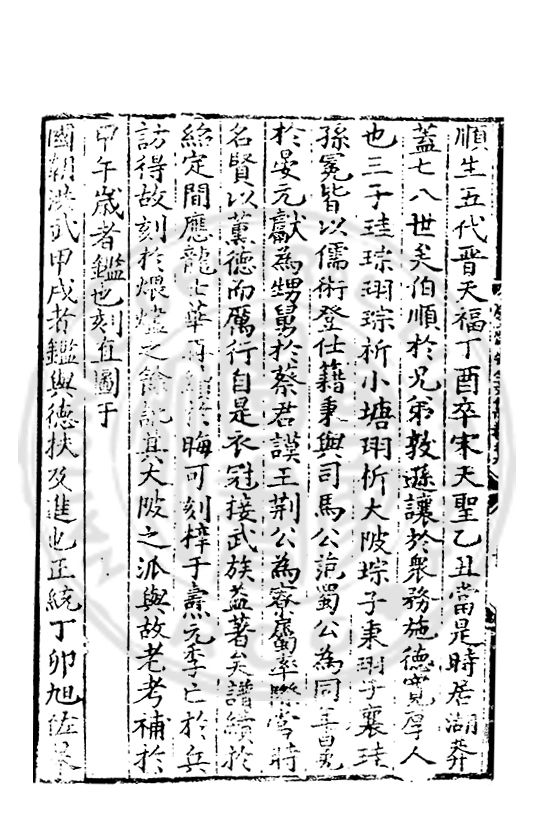 順生五代晉天福丁酉卒宋天聖乙丑當是時居湖莽
蓋七八世矣伯順於兄弟敦遜讓於衆務施德寬厚人
也三子珪琮珝琮析小塘珝析大陂琮子秉珝子襄珪
孫冕皆以儒術登仕籍秉與司馬公范蜀公為同年冕
於晏元獻為甥舅於蔡君謨王荆公為寮
名賢以薰德而厲行自是衣冠接武族益著矣譜續於
紹定間應龍士華再續於晦可刻梓于燾元季亡於兵
訪得故刻於煨燼之餘記其大陂之派與故老考補於
甲午歲者鑑也刻直圖于
國朝洪武甲戌者鑑與德扶及進也正統丁卯旭佐